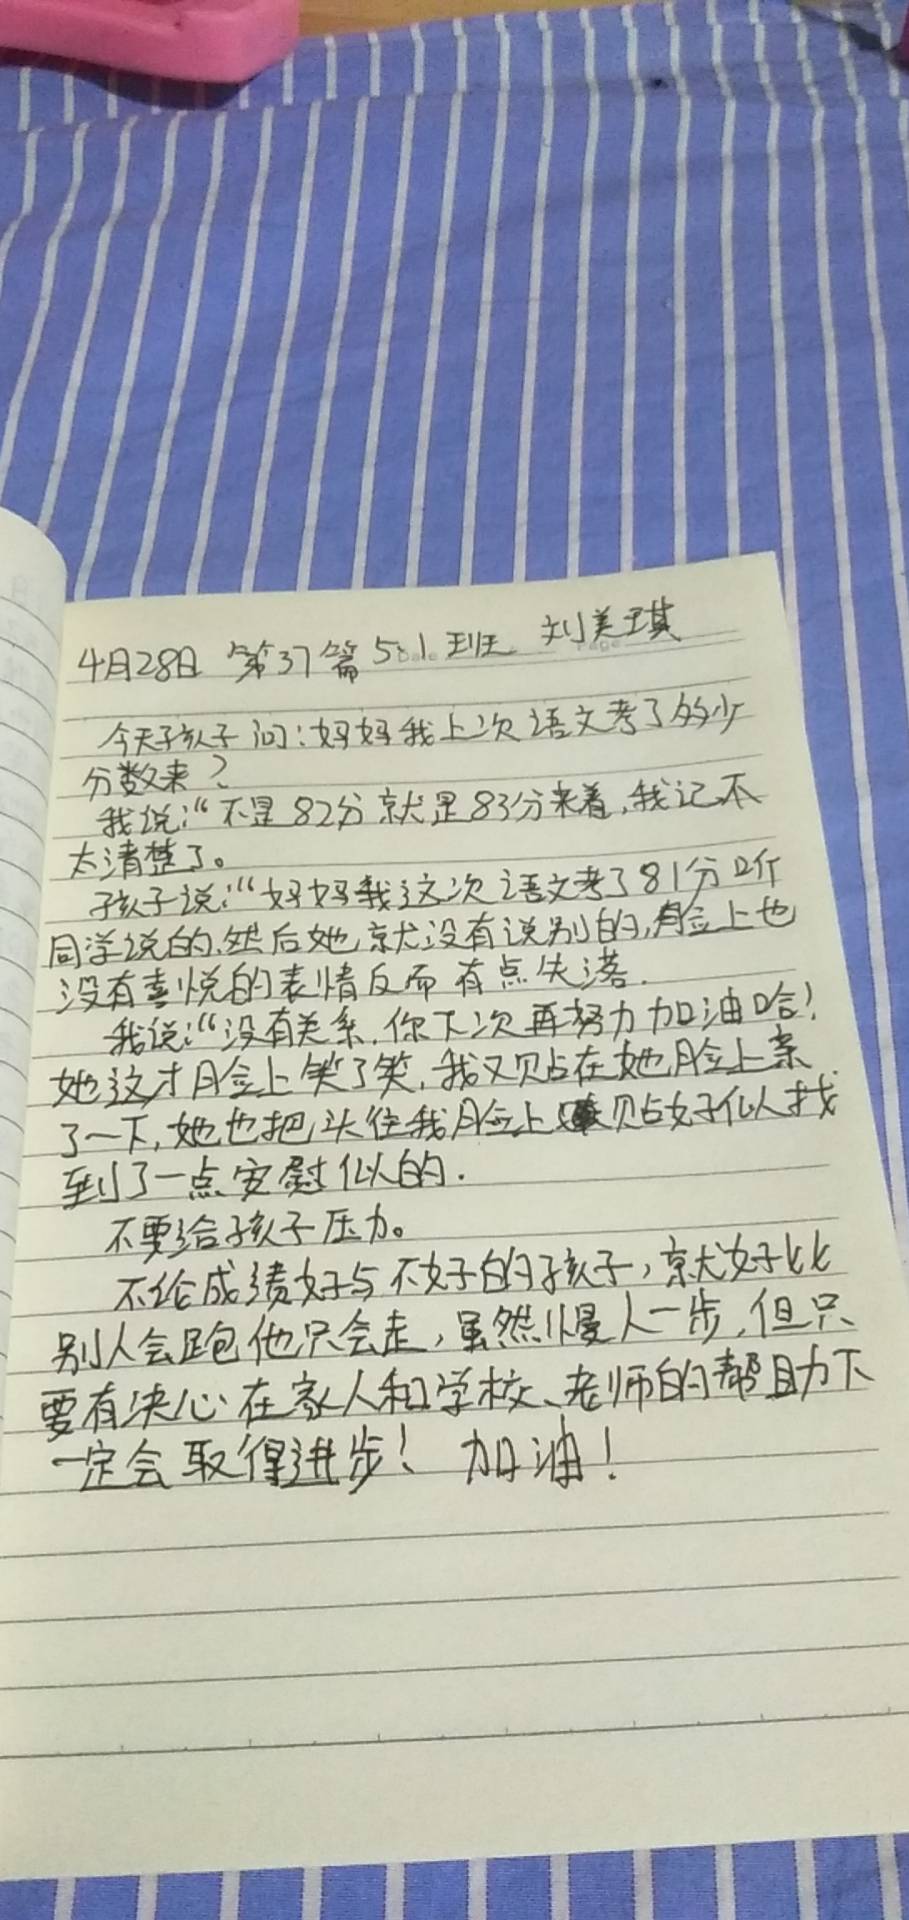 4月28日 第37篇 5.1班 刘美琪
Date Page
今天孩子问:妈妈我上次语文考了多少
分数来?
我说:“不是82分就是83分来着,我记不
太清楚了。
孩子说:“妈妈我这次语文考了81分听
同学说的,然后她就没有说别的,脸上也
没有喜悦的表情反而有点失落.
我说:“没有关系,你下次再努力加油哈!
她这才脸上笑了笑,我又贴在她脸上亲
了一下,她也把头往我脸上贴好似找
到了一点安慰似的.
不要给孩子压力。
不论成绩好与不好的孩子,就好比
别人会跑他只会走,虽然慢人一步,但只
要有决心在家人和学校、老师的帮助下
一定会取得进步! 加油!